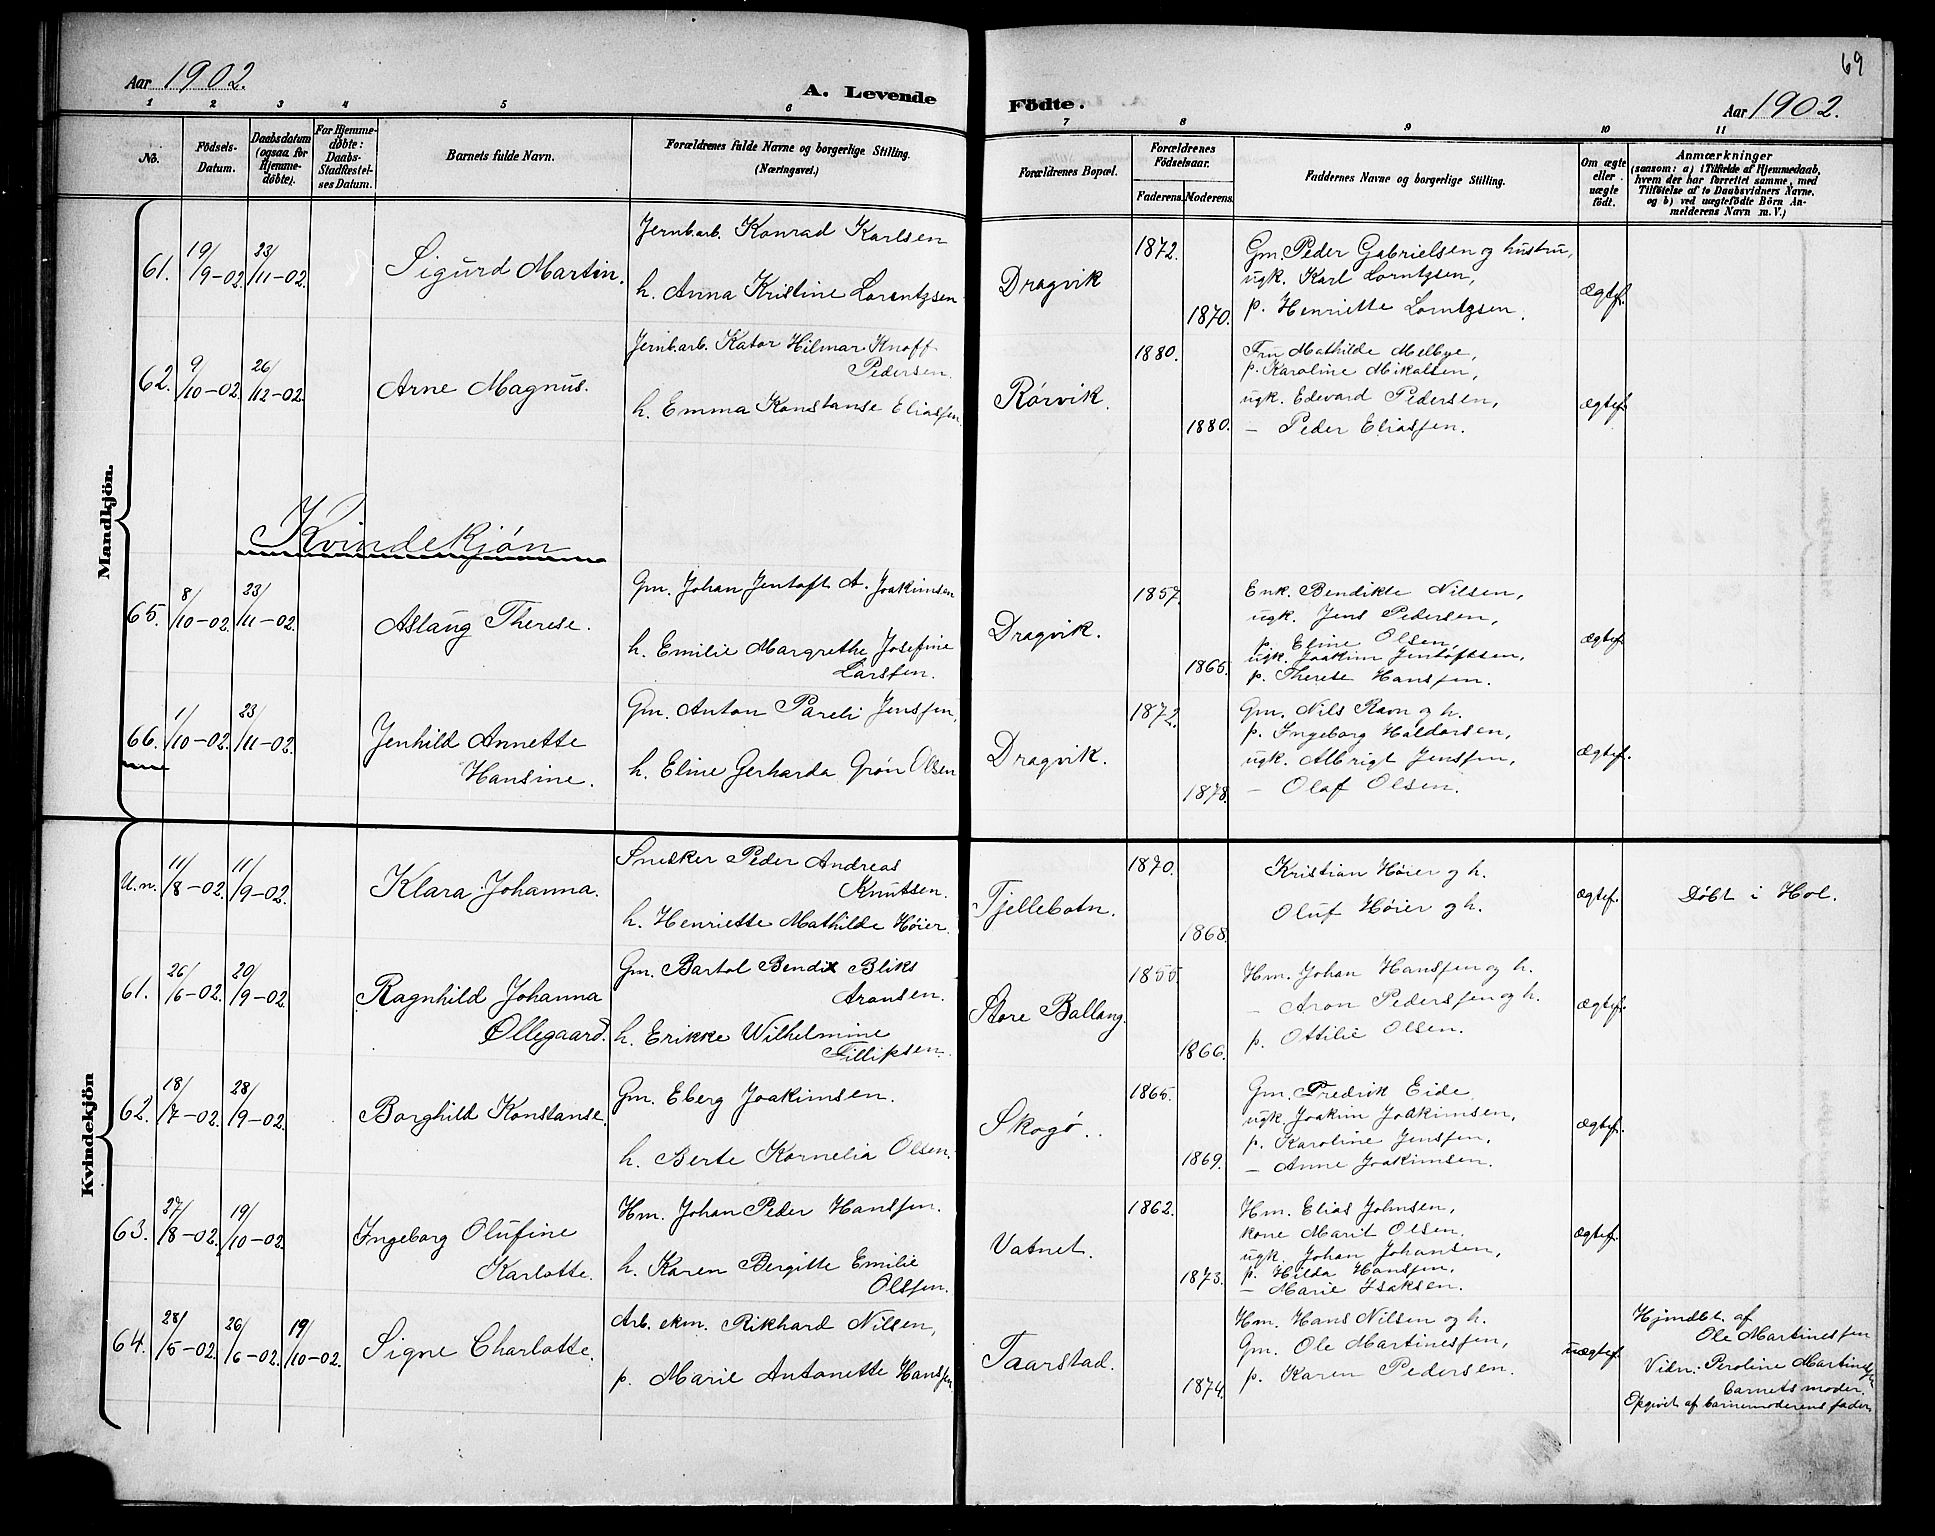 69
Aar 1902.
A. Levende Födte.
Aar 1902.
1 2 3 4 5 6 7 8 9 10 11
No.
Födsels-Datum.
Daabsdatum (ogsaa for Hjemmedøbte).
For Hjemmedøbte: Daabs-Stadfæstelses Datum.
Barnets fulde Navn.
Forældrenes fulde Navne og borgerlige Stilling.
(Næringsvei.)
Forældrenes Bopæl.
Forældrenes Födselsaar.
Faderens. Moderens.
Faddernes Navne og borgerlige Stilling.
Om ægte eller uægte födt.
Anmærkninger
(saasom: a) i Tilfælde af Hjemmedaab,
hvem der har forrettet samme, med
Tilföielse af to Daabsvidners Navne,
og b) ved uægtefödte Börn An-
melderens Navn m. V.)
Mandkjön.
61. 19/9-02. 23/11-02. Sigurd Martin.
Jernb.arb. Konrad Karlsen
h. Anna Kristine Lorentzsen
Dragvik
1872.
1870.
Gm. Peder Gabrielsen og hustru,
ugk. Karl Lorntzsen,
p. Henriette Lorntzsen.
ægtef.
62. 9/10-02. 26/12-02. Arne Magnus.
Jernb.arb. Kator Hilmar Knoff
Pedersen.
h. Emma Konstanse Eliassen
Rørvik.
1880.
1880.
Fru Mathilde Melbye,
p. Karoline Mikalsen,
ugk. Edevard Pedersen,
– Peder Eliassen.
ægtef.
Kvindekjøn
65. 8/10-02. 23/11-02. Aslaug Therese.
Gm. Johan Jentoft A. Joakimsen
h. Emilie Margrethe Josefine
Larssen.
Dragvik.
1857.
1865.
Enk. Bendikte Nilsen,
ugk. Jens Pedersen,
p. Eline Olsen,
ugk. Joakim Jentoftsen,
p. Therese Hanssen.
ægtef.
66. 1/10-02. 23/11-02. Jenhild Annette
Hansine.
Gm. Anton Pareli Jenssen,
h. Eline Gerharda Grøn Olsen
Dragvik.
1872.
1878.
Gm. Nils Ravn og h.
p. Ingeborg Haldorsen,
ugk. Albrigt Jenssen,
– Olaf Olsen.
ægtef.
Kvindekjön
U.n. 11/8-02. 11/9-02. Klara Johanna.
Snekker Peder Andreas
Knutsen.
h. Henriette Mathilde Høier.
Tjellebotn.
1870.
1868.
Kristian Høier og h.
Oluf Høier og h.
ægtef.
Døbt i Hol.
61. 26/6-02. 20/9-02. Ragnhild Johanna
Ollegaard.
Gm. Bartol Bendix Bliks
Aronsen.
h. Erikke Wilhelmine
Fillipsen.
Store Ballang.
1855.
1866.
Hm. Johan Hanssen og h.
– Aron Pederssen og h.
p. Ottilie Olsen.
ægtef.
62. 18/7-02. 28/9-02. Borghild Konstanse.
Gm. Eberg Joakimsen.
h. Berte Kornelia Olsen.
Skogø.
1865.
1869.
Gm. Fredrik Eide,
ugk. Joakim Joakimsen,
p. Karoline Jenssen,
– Anne Joakimsen.
ægtef.
63. 27/8-02. 19/10-02. Ingeborg Olufine
Karlotte.
Hm. Johan Peder Hanssen.
h. Karen Bergitte Emilie
Olssen.
Vatnet.
1862.
1873.
Hm. Elias Johnsen,
kone Marit Olsen.
ugk. Johan Johansen,
p. Hilda Hanssen,
– Marie Isaksen.
ægtef.
64. 28/5-02. 26/6-02. 19/10-02. Signe Charlotte.
Arb. ekm. Rikhard Nilsen,
p. Marie Antonette Hanssen
Taarstad.
1874.
Hm. Hans Nilsen og h.
Gm. Ole Martinessen,
p. Karen Pedersen.
uægtef.
Hjmdbt af
Ole Martinessen
Vidn: Peroline Martinessen
barnets moder.
Opgivet af barnemoderens fader.